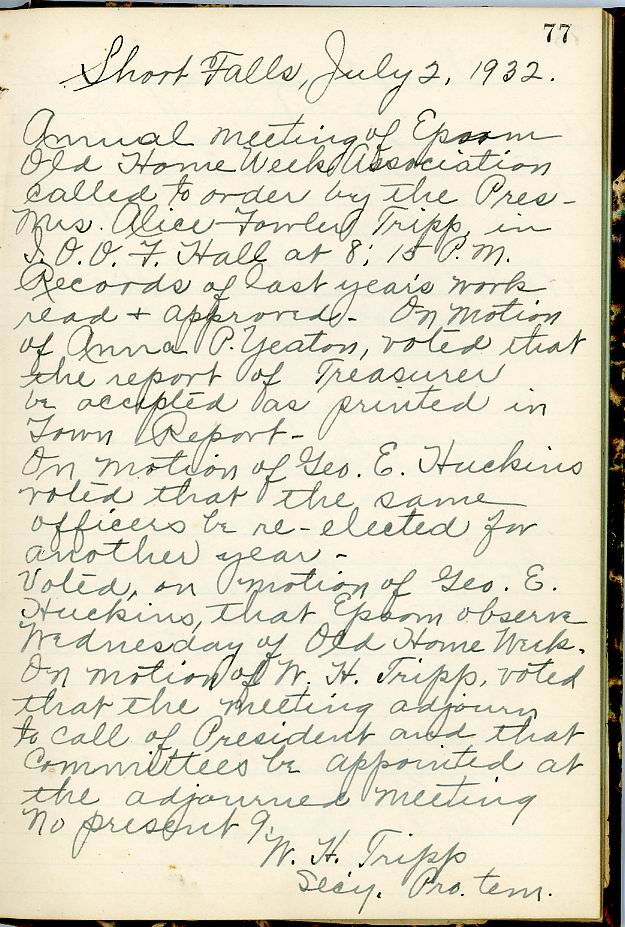 77
Short Falls, July 2, 1932.
Annual meeting of Epsom
Old Home Week Association
called to order by the Pres-
Mrs. Alice Fowler Tripp, in
I. O. O. F. Hall at 8; 15 P. M.
Records of last year's work
read + approved - On motion
of Anna P. Yeaton, voted that
the report of Treasurer
be accepted as printed in
Town Report -
On motion of Geo. E. Huckins
voted that the same
officers be re-elected for
another year -
Voted, on motion of Geo. E.
Huckins, that Epsom observe
Wednesday of Old Home Week.
On motion of W. H. Tripp, voted
that the meeting adjourn
to call of President and that
committees be appointed at
the adjourned meeting
No present 9.
W. H. Tripp
Sec'y. Pro. tem.